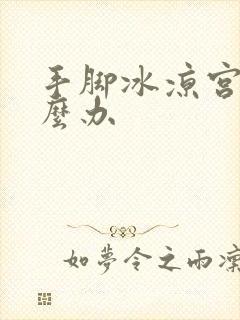 手脚冰凉宫
麼办
如夢令之雨凜